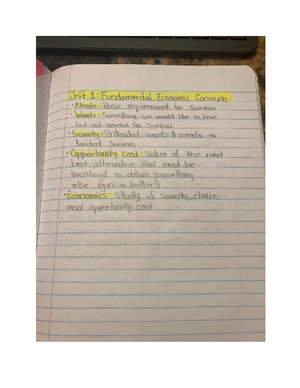 Unit 1: Fundamental Economic Concepts
• Needs: Basic requirement for survival
• Wants: Something you would like to have
but not needed for survival
• Scarcity: Unlimited wants & needs vs
limited
• Opportunity Cost: Value of the next
best alternative that must be
sacrificed to obtain something
else (guns or butter)
• Economics: Study of scarcity, choice,
and opportunity cost